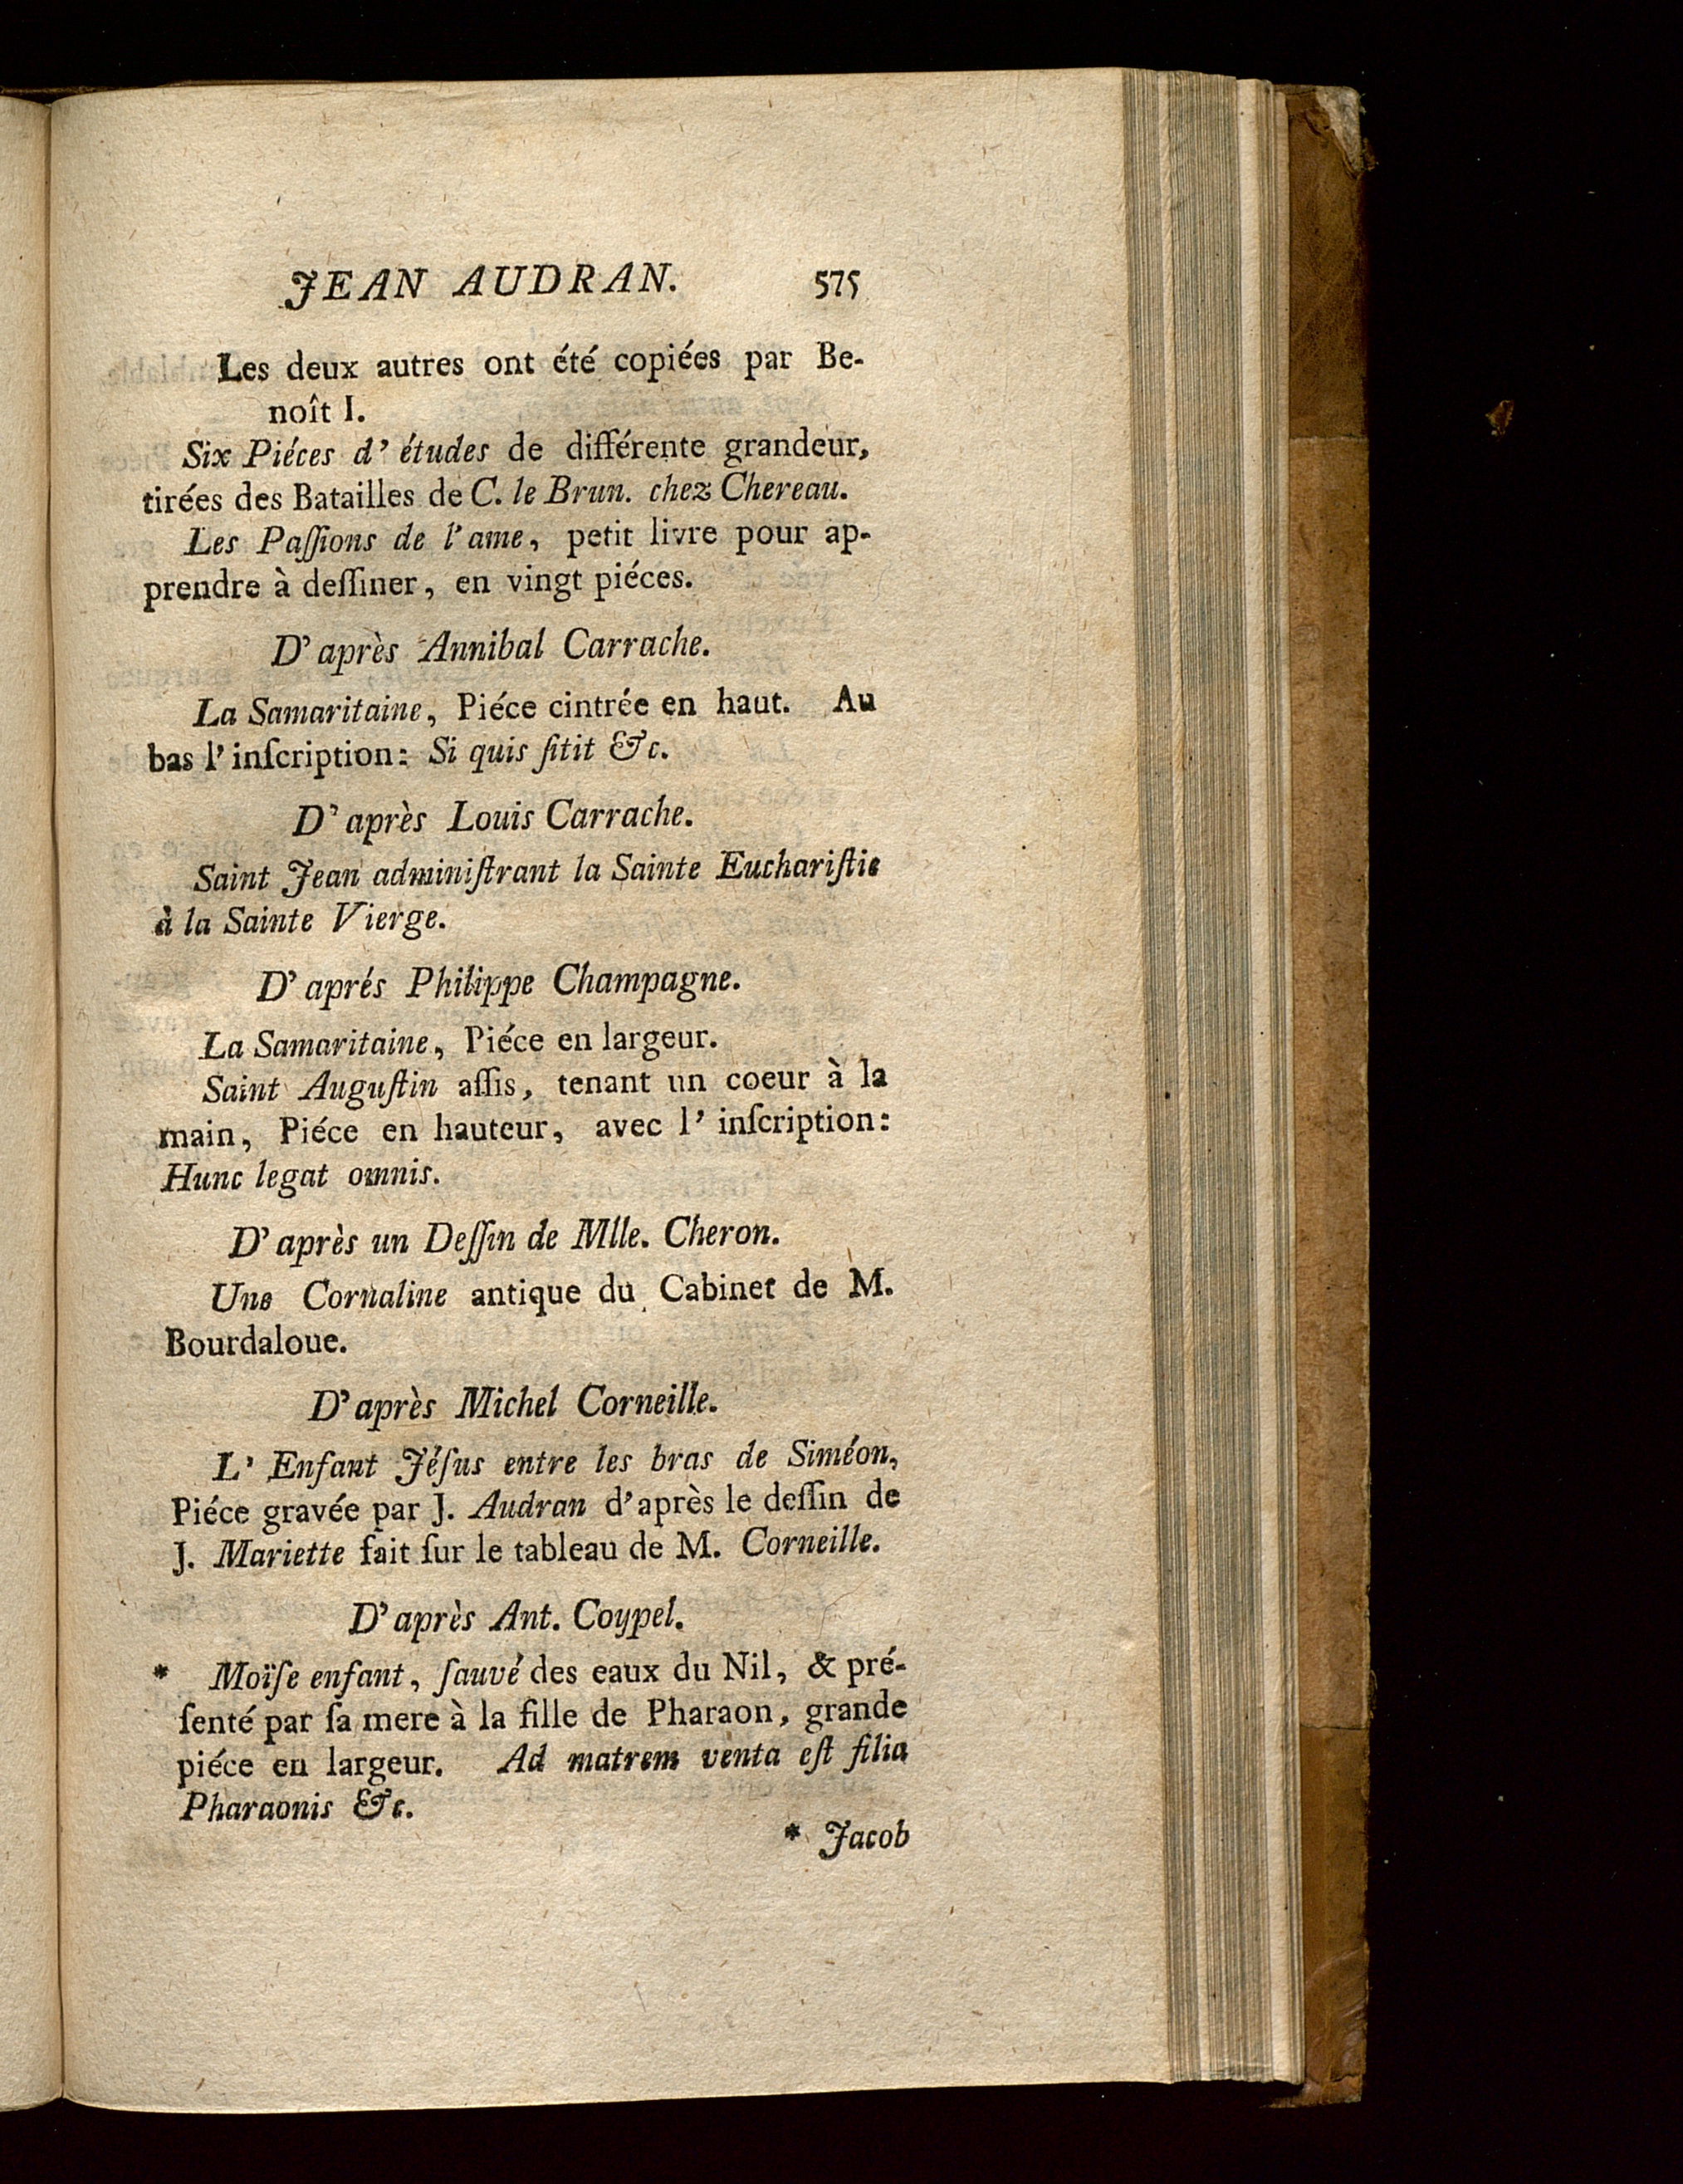 JEAN AUDRAN. 575
Les deux autres ont été copiées par Be-
noît I.
Six Piéces d' études de différente grandeur,
tirées des Batailles de C. le Brun. chez Chereau.
Les Paſſions de l'ame, petit livre pour ap-
prendre à deſſiner, en vingt piéces.
D' après Annibal Carrache.
La Samaritaine, Piéce cintrée en haut. Au
bas l' inſcription: Si quis ſitit &c.
D' après Louis Carrache.
Saint Jean adminiſtrant la Sainte Euchariſtie
à la Sainte Vierge.
D' aprés Philippe Champagne.
La Samaritaine, Piéce en largeur.
Saint Auguſtin aſſis, tenant un coeur à la
main, Piéce en hauteur, avec l' inſcription:
Hunc legat omnis.
D' après un Deſſin de Mlle. Cheron.
Une Cornaline antique du Cabinet de M.
Bourdaloue.
D' après Michel Corneille.
L' Enfant Jéſus entre les bras de Siméon,
Piéce gravée par J. Audran d'après le deſſin de
J. Mariette fait ſur le tableau de M. Corneille.
D' après Ant. Coypel.
* Moïſe enfant, ſauvé des eaux du Nil, & pré-
ſenté par ſa mere à la fille de Pharaon, grande
piéce en largeur. Ad matrem venta eſt filia
Pharaonis &c.
* Jacob